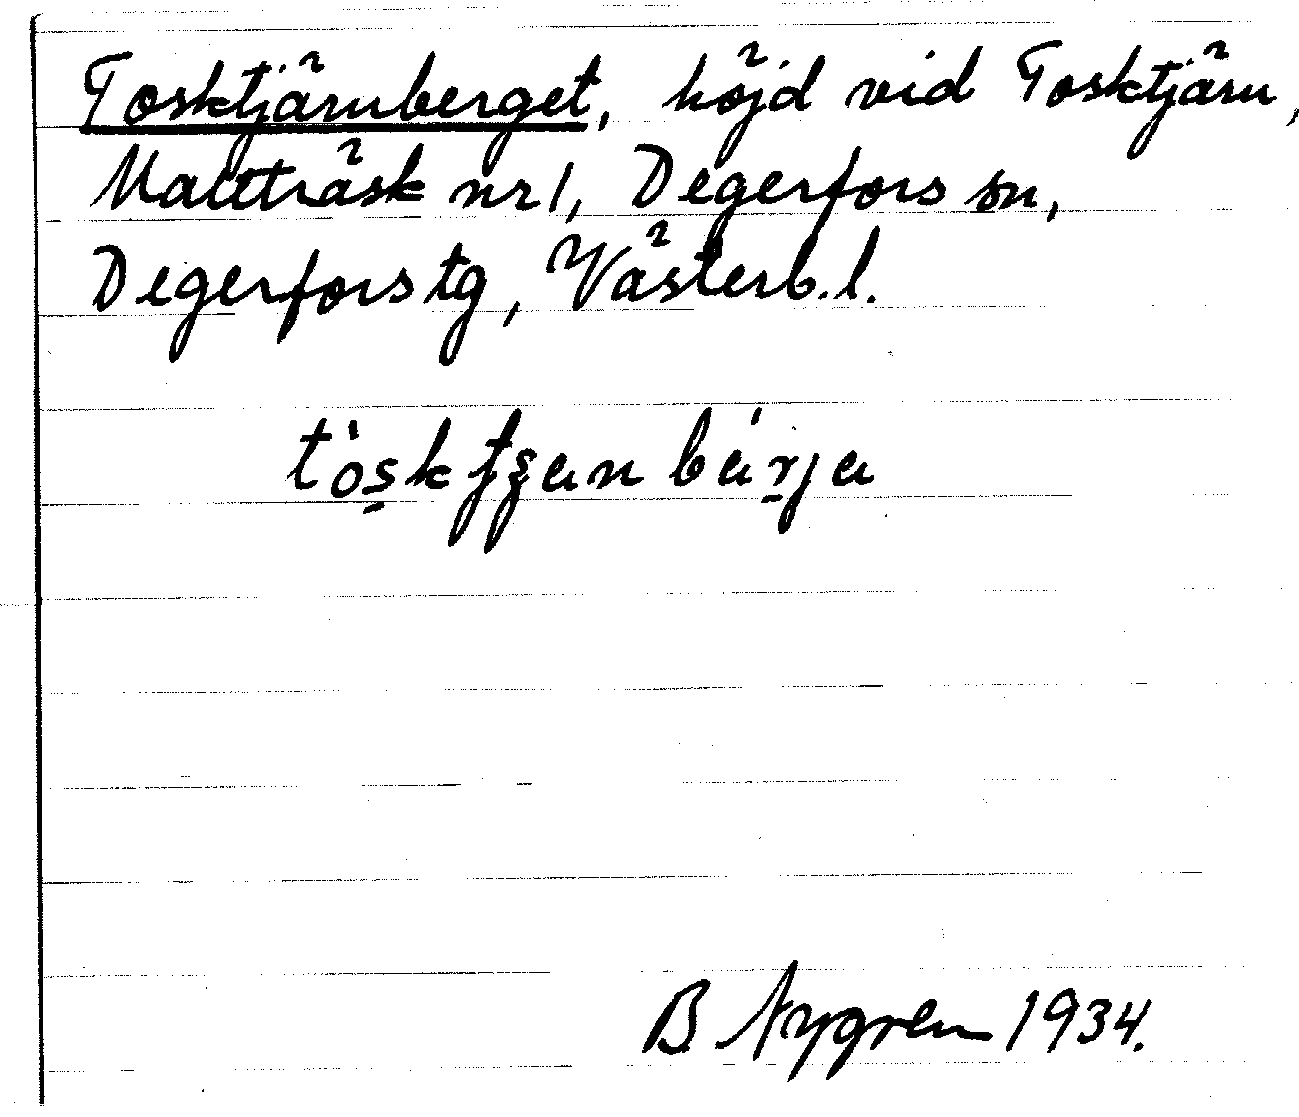 Tosktjärnberget, höjd vid Tosktjärn,
Maltträsk nr 1, Degerfors sn,
Degerfors tg, Västerb. l.
B Nygren 1934.